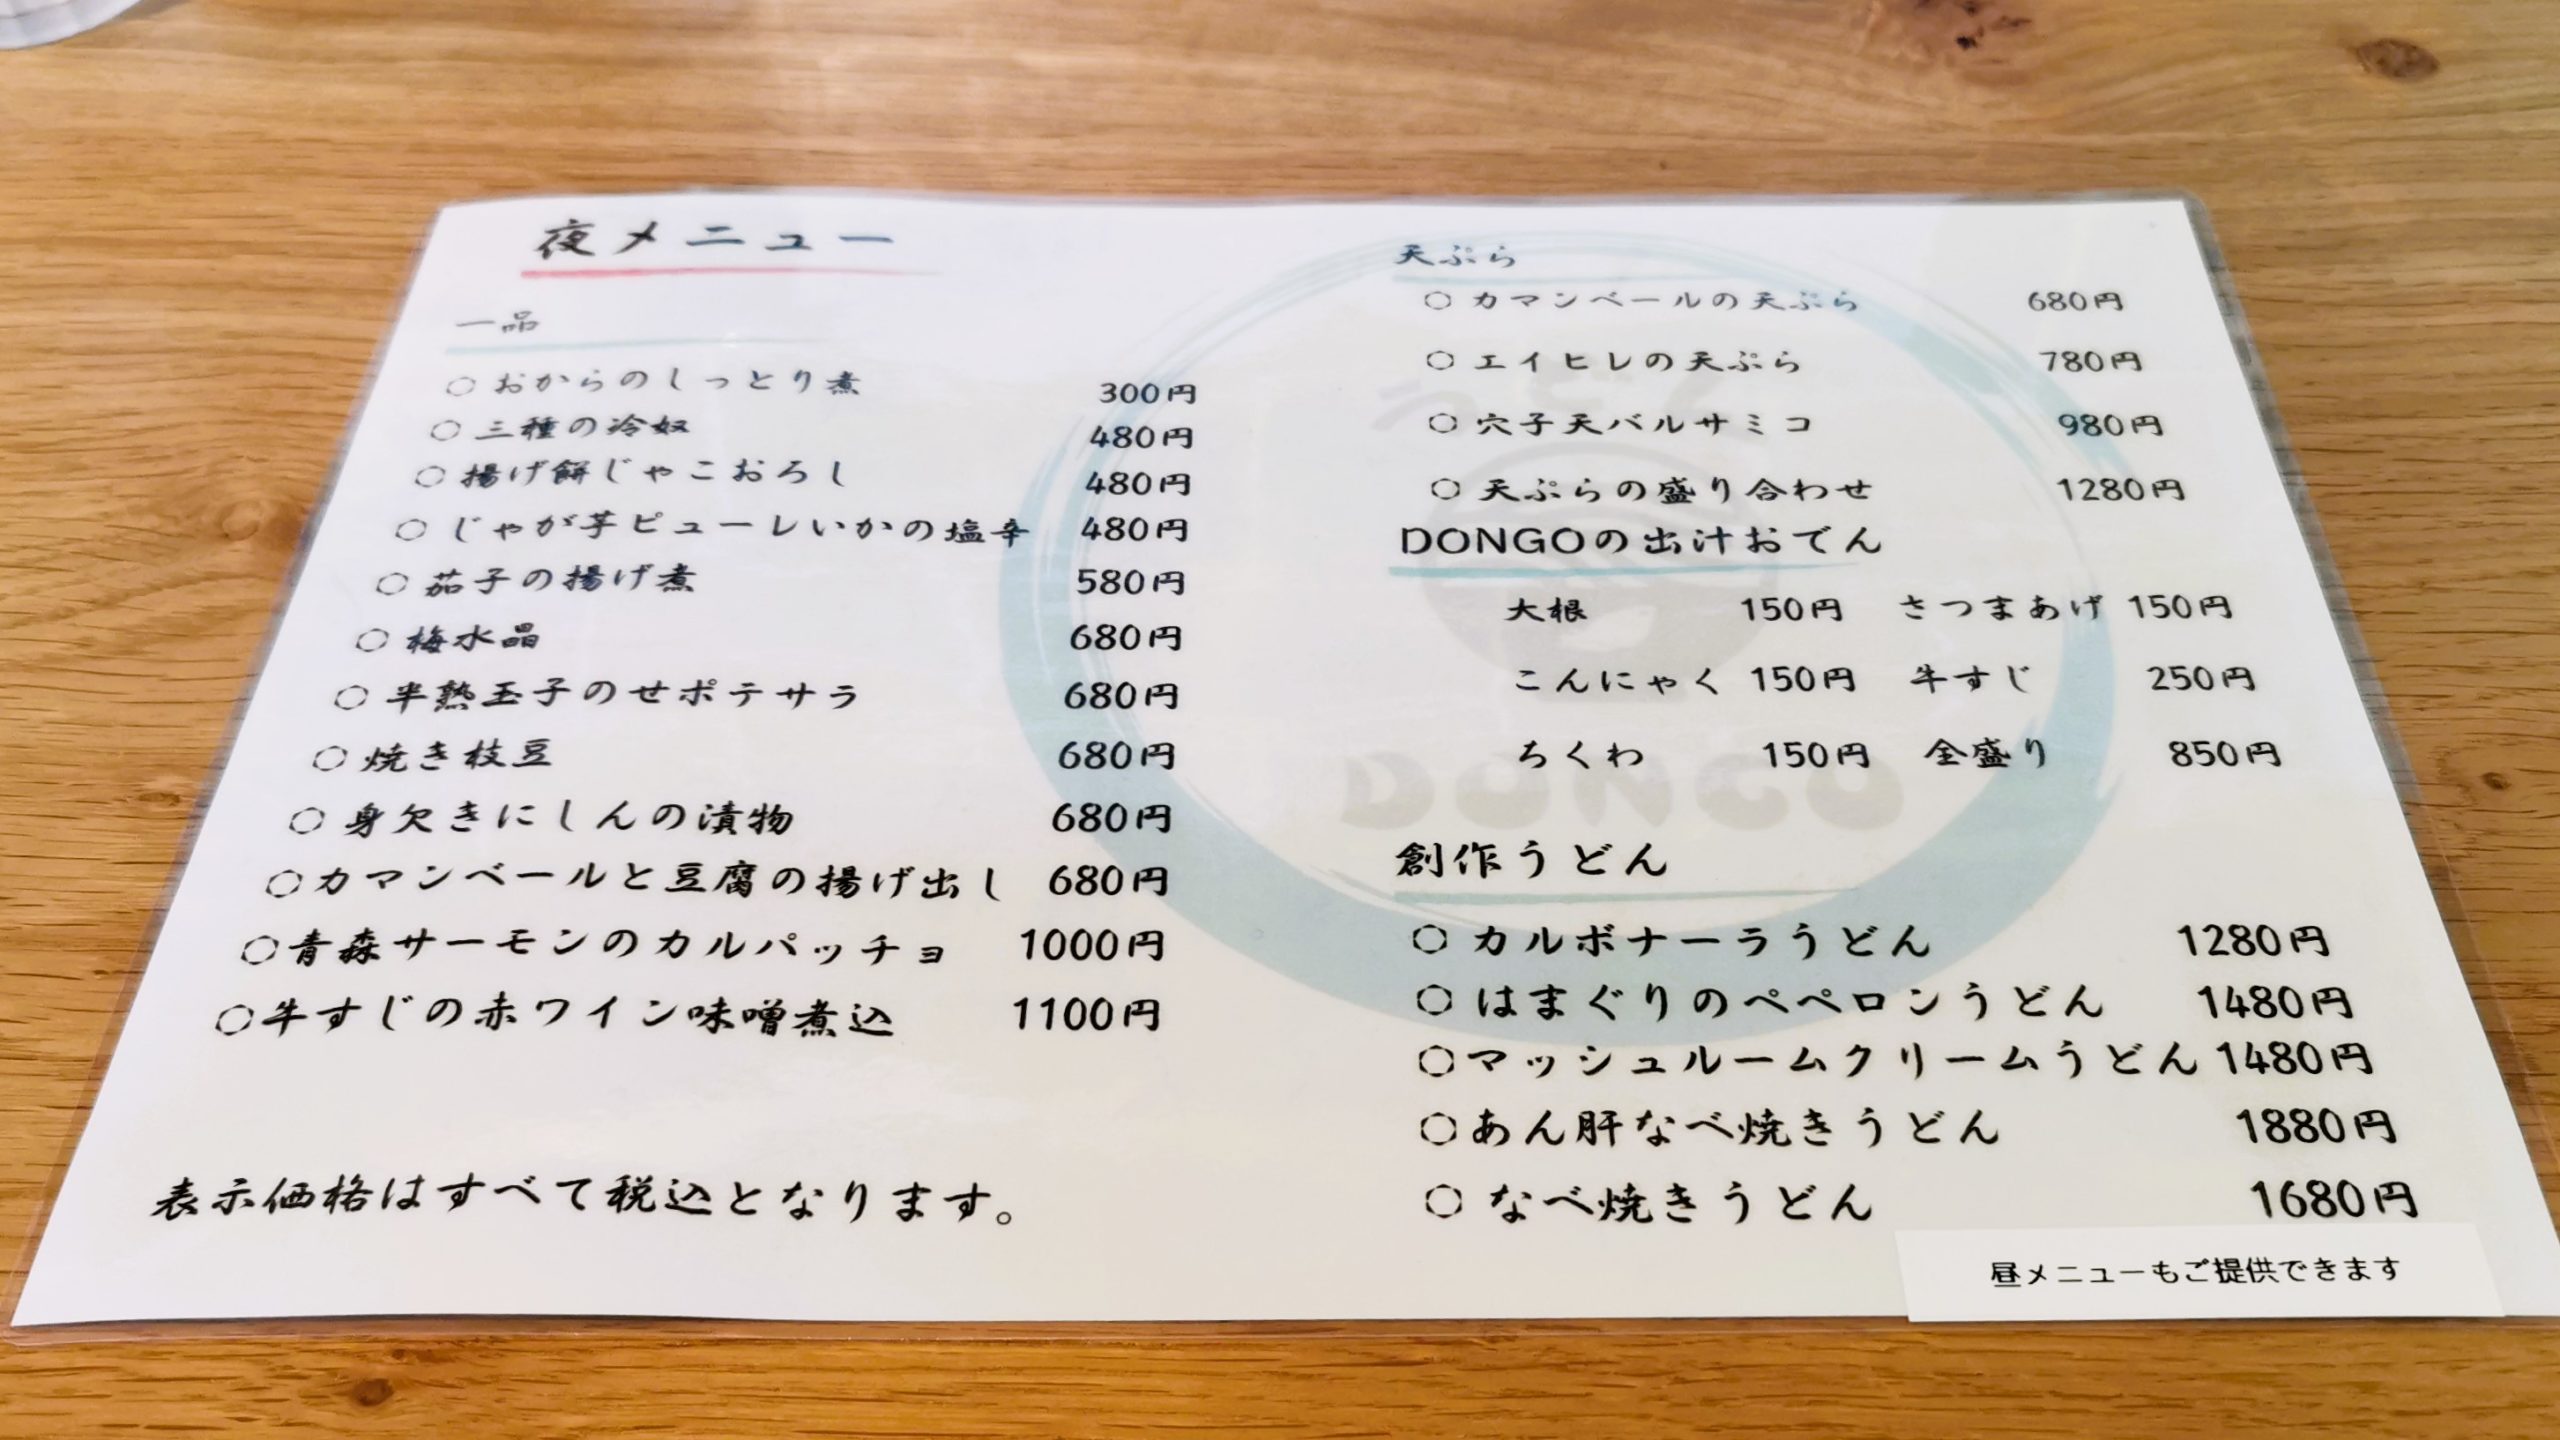 夜メニュー
一品
○おからのしっとり煮 300円
○三種の冷奴 480円
○揚げ餅じゃこおろし 480円
○じゃが芋ピューレいかの塩辛 480円
○茄子の揚げ煮 580円
○梅水晶 680円
○半熟玉子のせポテサラ 680円
○焼き枝豆 680円
○身欠きにしんの漬物 680円
○カマンベールと豆腐の揚げ出し 680円
○青森サーモンのカルパッチョ 1000円
○牛すじの赤ワイン味噌煮込 1100円
表示価格はすべて税込となります。
天ぷら
○カマンベールの天ぷら 680円
○エイヒレの天ぷら 780円
○穴子天バルサミコ 980円
○天ぷらの盛り合わせ 1280円
DONGOの出汁おでん
大根 150円 さつまあげ 150円
こんにゃく 150円 牛すじ 250円
ちくわ 150円 全盛り 850円
創作うどん
○カルボナーラうどん 1280円
○はまぐりのペペロンうどん 1480円
○マッシュルームクリームうどん 1480円
○あん肝なべ焼きうどん 1880円
○なべ焼きうどん 1680円
昼メニューもご提供できます
うどん
DONGO